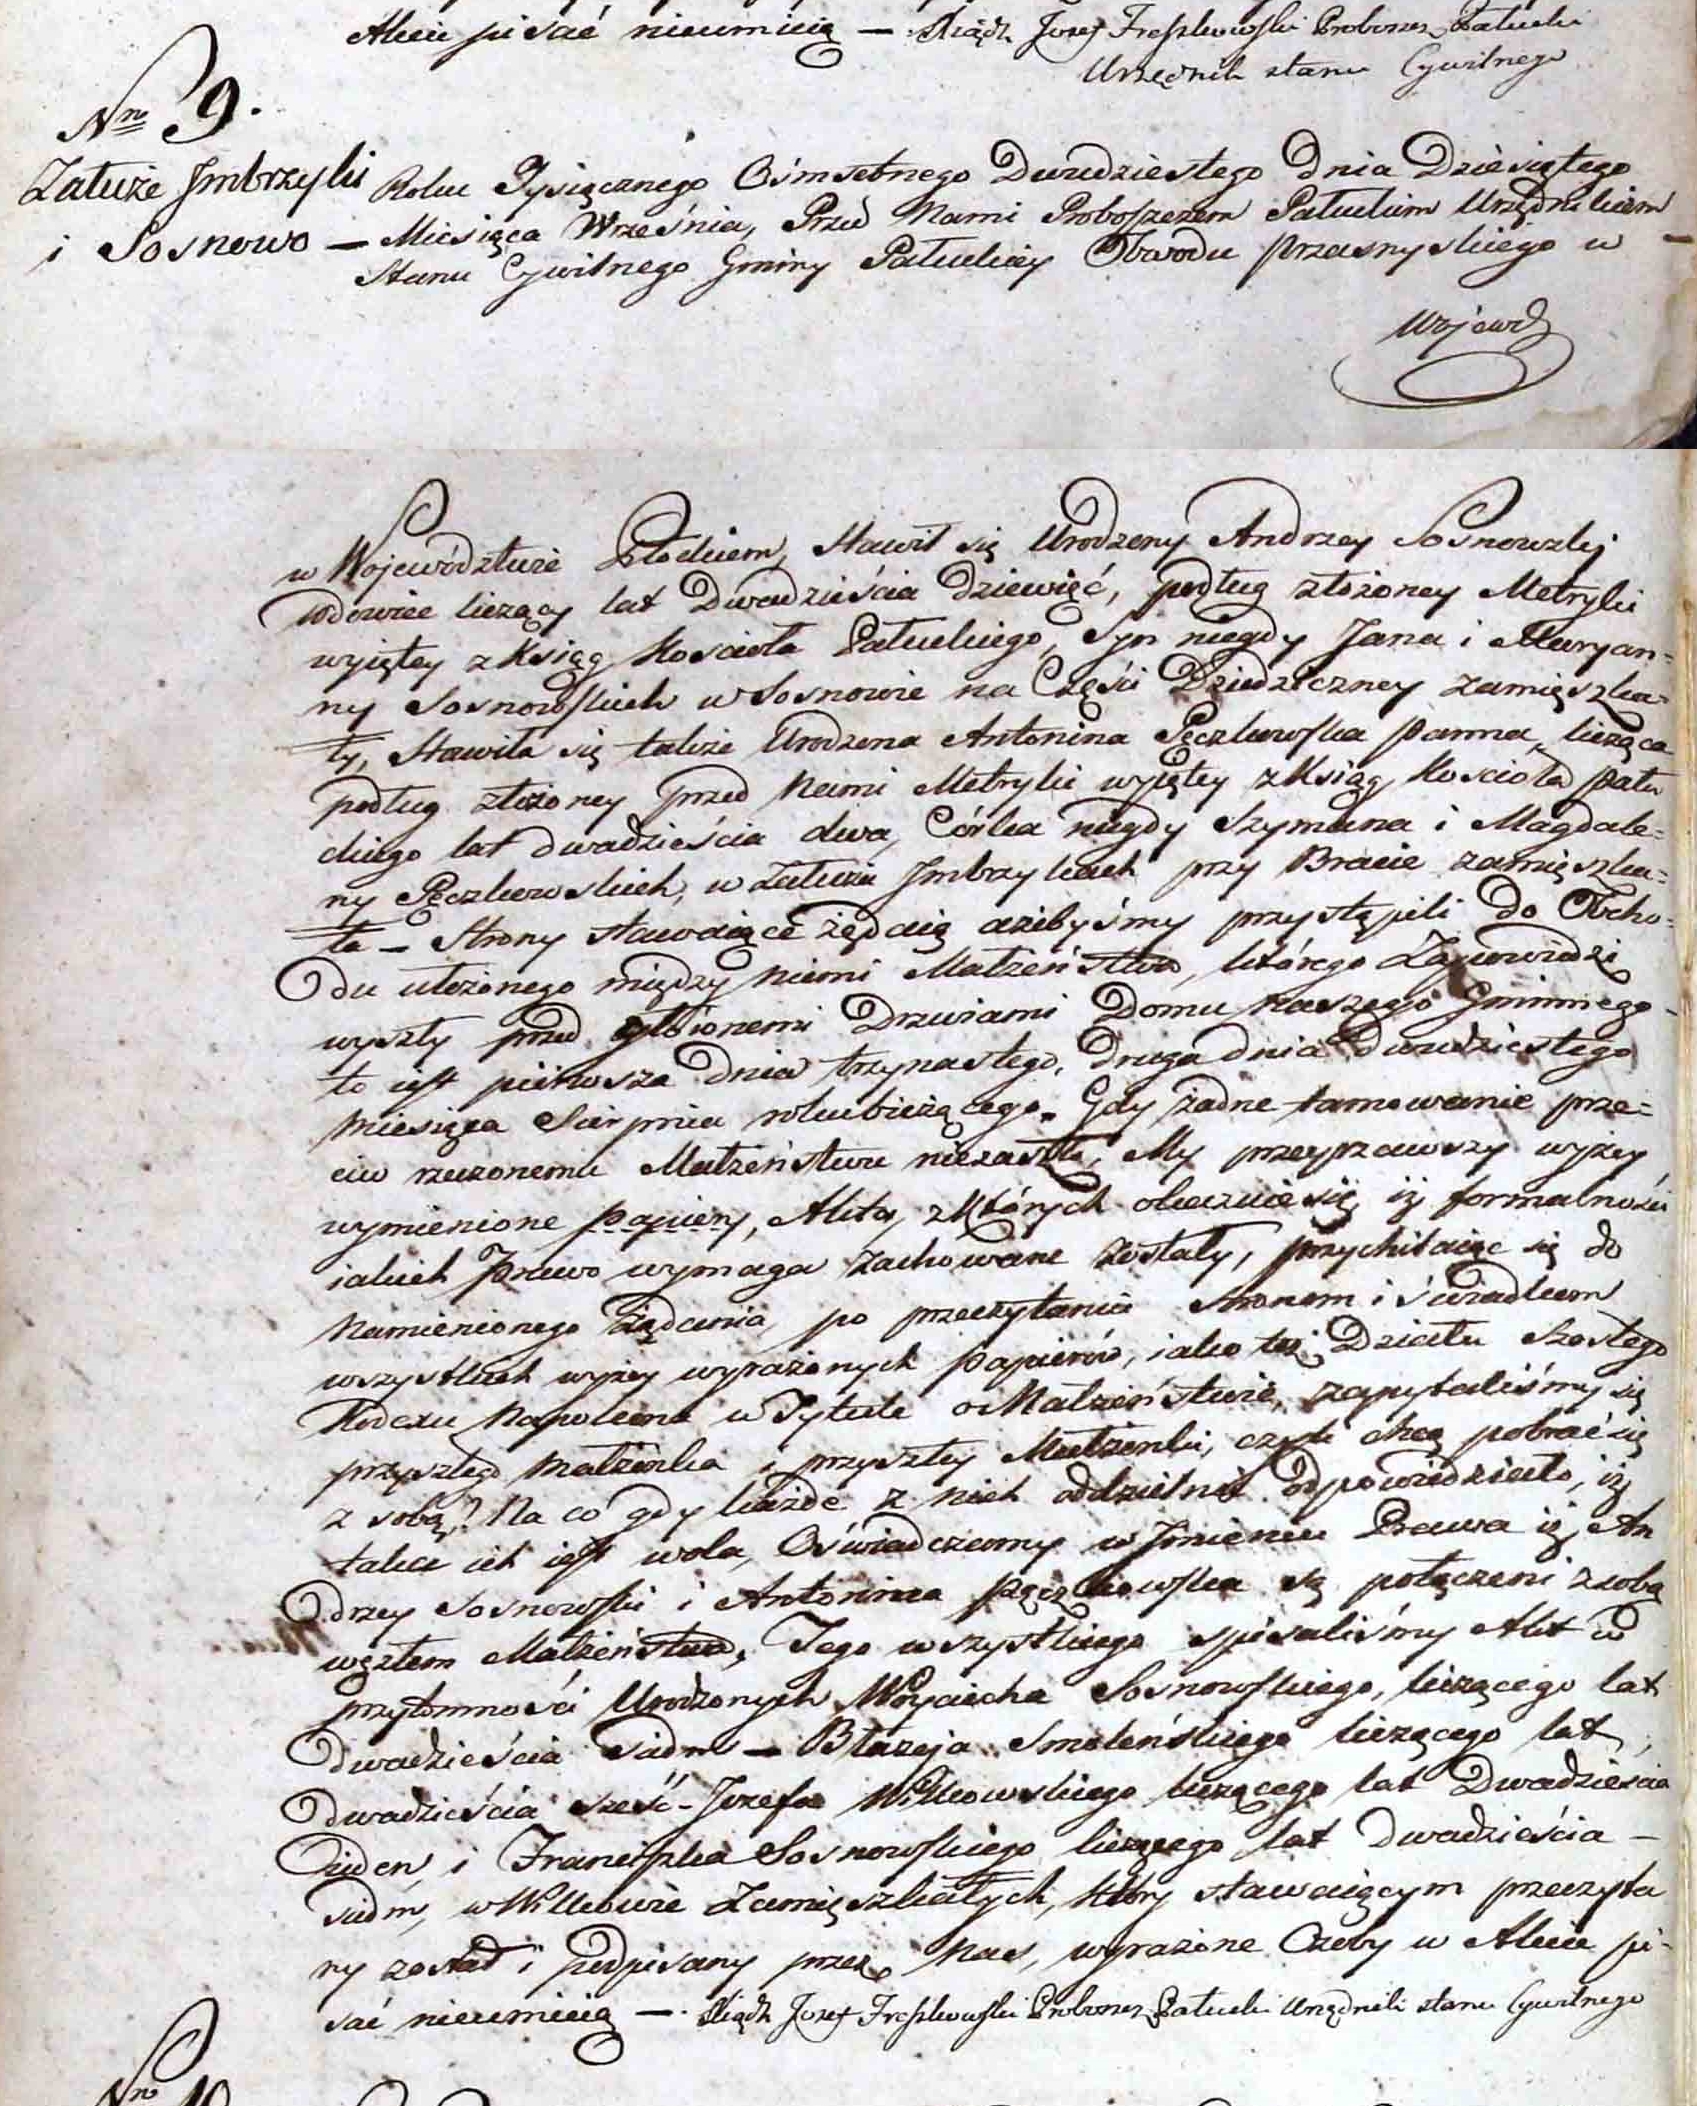 Akcie pisać nieumieią — Xiądz Jozef Freszkowski Proboszcz Pałucki
Urzędnik stanu Cywilnego
Nro 9.
Załuże Jmbrzyki
i Sosnowo —
Roku Tysiącznego Osmsetnego Dwudziestego Dnia Dziesiątego
Miesiąca Września, Przed Nami Proboszczem Pałuckim Urzędnikiem
Stanu Cywilnego Gminy Pałuckiey Obwodu Przasnyskiego w —
Wojewd
w Województwie Płockiem, Stawił się Urodzony Andrzey Sosnowzkj
wdowiec liczący lat Dwadzieścia dziewięć, podług złożoney Metryki
wyiętey z Ksiąg Kościoła Pałuckiego, Syn niegdy Jana i Maryan=
ny Sosnowskich w Sosnowie na Części Dziedziczney zamięszka=
ły, Stawiła się także Urodzona Antonina Pęczkowska Panna, licząca
podług złożoney przed Nami Metryki wyiętey z Ksiąg Kościoła Pału
ckiego lat dwadzieścia dwa, Córka niegdy Szymona i Magdale=
ny Pęczkowskich, w Załużu Jmbrzykach przy Bracie zamięszka=
ła — Strony stawaiące żądaią ażebyśmy przystąpili do Obcho=
du ułożonego między niemi Małżeństwa, którego Zapowiedzi
wyszły przed głównemi Drzwiami Domu naszego Gminnego —
to iest pierwsza Dnia trzynastego, druga dnia Dwudziestego
Miesiąca Sierpnia roku bieżącego. Gdy żadne tamowanie prze=
ciw rzeczonemu Małżeństwu niezaszło, My przeyrzawszy wyżey
wymienione papiery, Akta, z których okazuie się, iż formalności
iakich Prawo wymaga zachowane zostały, przychilaiąc się do
Namienionego żądania, po przeczytaniu Stronom i świadkom
wszystkich wyżey wyrażonych papierów, iako też Działu Szostego
Kodexu Napoleona w Tytule o Małżeństwie, zapytaliśmy się
przyszłego Małżonka i przyszłey Małżonki, czyli chcą pobrać się
z sobą? Na co gdy każde z nich oddzielnie odpowiedziało, iż
taka ich iest wola, Oświadczamy w Jmieniu Prawa iż An
drzey Sosnowski i Antonina Pęczkowska są połączeni z sobą
węzłem Małżeństwa, Tego wszystkiego spisaliśmy Akt w
przytomności Urodzonych Woyciecha Sosnowskiego, liczącego lat
Dwadzieścia siedm — Błażeja Smoleńskiego liczącego lat,
Dwadzieścia sześć — Jozefa Wilkowskiego liczącego lat Dwadzieścia
ieden, i Franciszka Sosnowskiego liczącego lat dwadzieścia —
siedm, w Wilkowie Zamięszkałych, który stawaiącym przeczyta
ny został i podpisany przez Nas, wyrażone Osoby w Akcie pi=
sać nieumieią —. Xiądz Jozef Freszkowski Proboszcz Pałucki Urzędnik stanu Cywilnego
Nro 10